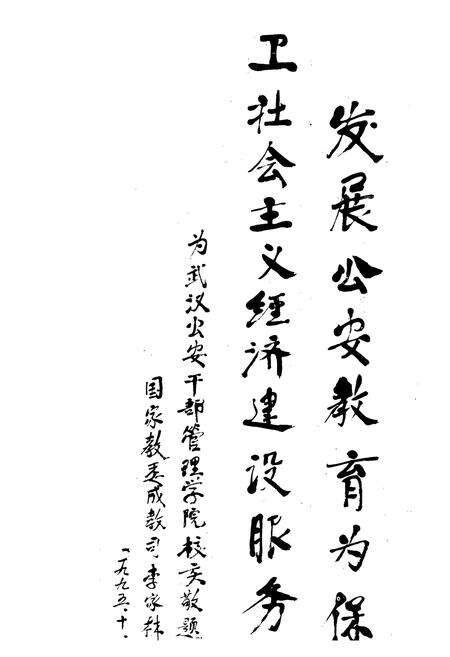 发展公安教育为保
卫社会主义经济建设服务
为武汉公安干部管理学院校庆敬题
国家教委成教司李家林
一九九五·十·